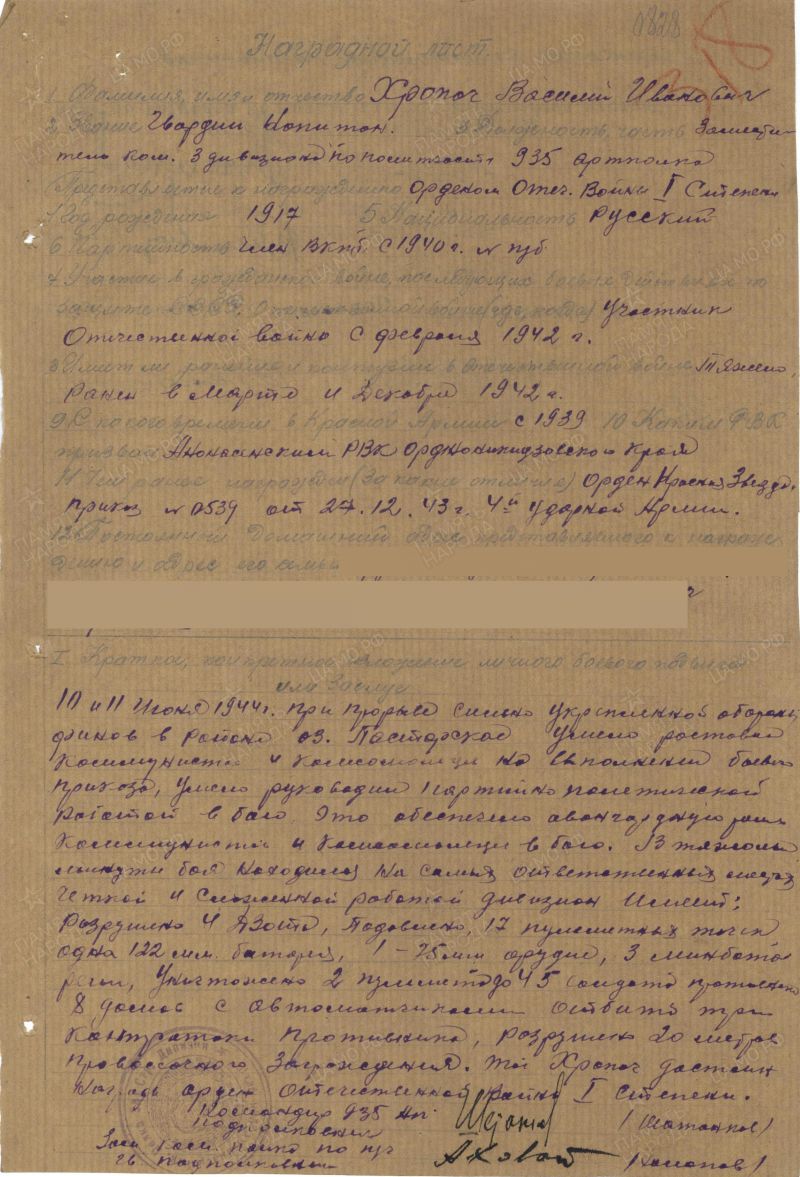 0828
Наградной лист.
1. Фамилия, имя и отчество Хропоч Василий Иванович
2 Звание Гвардии Капитан. 3 Должность, часть Замести-
тель ком. 3 дивизиона по политчасти 935 артполка
Представляется к награждению орденом Отеч. Войны I Степени
4 Год рождения 1917 5 Национальность Русский
6 Партийность член ВКПб с 1940 г. № п/б
7 Участие в гражданской войне, последующих боевых действиях по
защите СССР и отечественной войне (где, когда) участник
Отечественной войны с февраля 1942 г.
8 Имеет ли ранения и контузии в отечественной войне Тяжело
ранен в Марте и Декабре 1942 г.
9 С какого времени в Красной Армии с 1939 10 Каким РВК
призван РВК Орджоникидзевского Края
11 Чем ранее награжден (за какие отличия) Орден Красная Звезда.
приказ № 0539 от 27.12.43 г. 4й ударной Армии.
12 Постоянный домашний адрес представляемого к награж-
дению и адрес его семьи
I Краткое, конкретное изложение личного боевого подвига
или заслуг
10 и 11 Июня 1944 г. при прорыве сильно укрепленной обороны
финнов в районе оз. умело расставил
Коммунистов и комсомольцев на выполнение боевого
приказа, умело руководил партийно политической
работой в бою. Это обеспечило авангардную роль
Коммунистов и Комсомольцев в бою. В тяжелые
минуты боя находился на самых ответственных местах
четкой и слаженной работой дивизион имеет:
Разрушено 4 ДЗОТа, Подавлено, 17 пулеметных точек
одна 122 мм. батарея, 1 – 75 мм орудие, 3 минбата-
реи, уничтожено 2 пулемета до 45 солдат противника
8 домов с автоматчиками отбито три
контратаки противника, разрушено 20 метров
проволочного заграждения. Тов Хропоч достоин
Награды орден Отечественной войны I степени.
Командир 935 ап
подполковник
Зам ком полка по п/ч
гв. подполковник